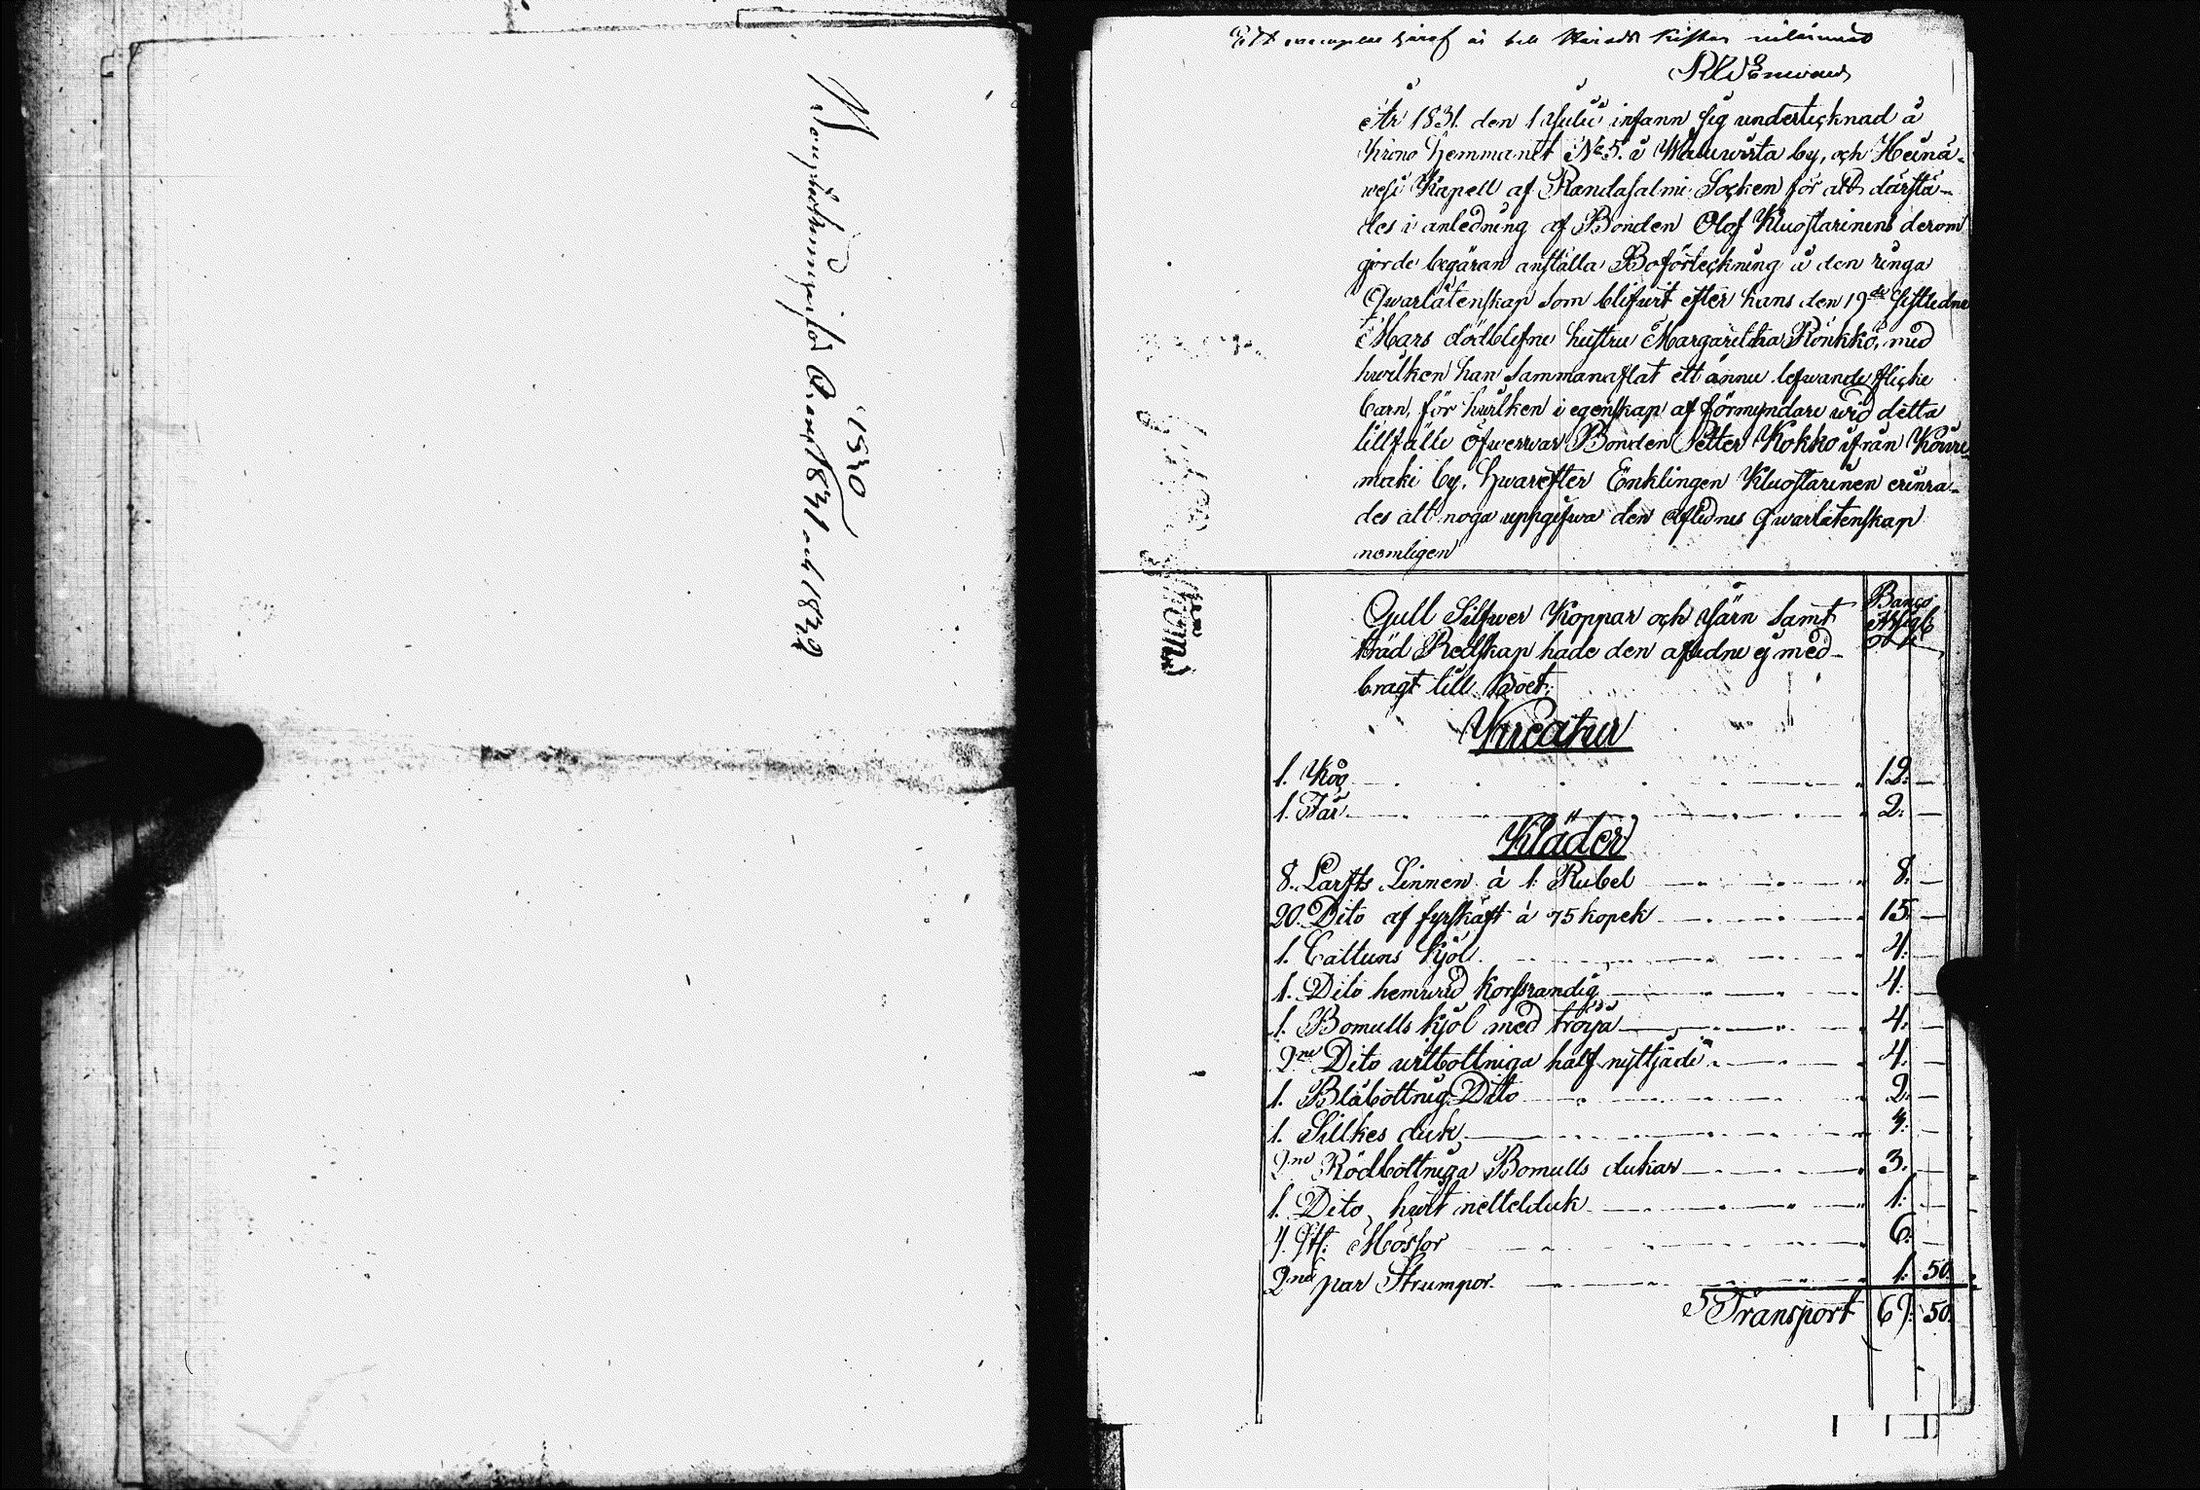 1520
Åren 1831 och 1832
Ett exemplar häraf är till Härads Kistan
År 1831. den 1 Julii infann sig undertecknad å
Krono Hemmanet No 5. å by, och Heinä-
wesi Kapell af Randasalmi Socken för att därstä-
des i anledning af Bonden Olof Kluostarinens derom
gjorde begäran anställa Boförteckning å den ringa
Qwarlåtenskap som blifwit efter hans den 19de sistledne
Mars dödblefne hustru Margaretha Rönkkö, med
hwilken han sammanaflat ett ännu lefwande flicke
barn, för hwilken i egenskap af förmyndare wid detta
tillfälle öfwerwar Bonden Petter Kokko ifrån
mäki by, Hwarefter Enklingen Kluostarinen erinra-
des att noga uppgifwa den Aflednes Qwarlåtenskap
nemligen
Gull Silfwer Koppar och Järn samt
träd Redskap hade den aflidne ej med-
bragt till Boet.
Banco
Kreatur
1. Ko 12. —
1. Får 2. —
Kläder
8. Larfts Linnen à 1 Rubel 8. —
20. Dito af fyrskaft à 75 kopek 15. —
1. Cattuns Kjol 4. —
1. Dito hemwäfd Korssrandig 4. —
1. Bomulls kjol med tröja 4. —
2ne Dito witbottniga half nyttjade 4. —
1. Blåbottnig Dito 2. —
1. Sillkes duk —
2ne Rödbottniga Bomulls dukar 3. —
1. Dito hwit nettelduk 1. —
St. Mössor 6. —
2ne par Strumpor 1. 50.
Transport 69. 50.